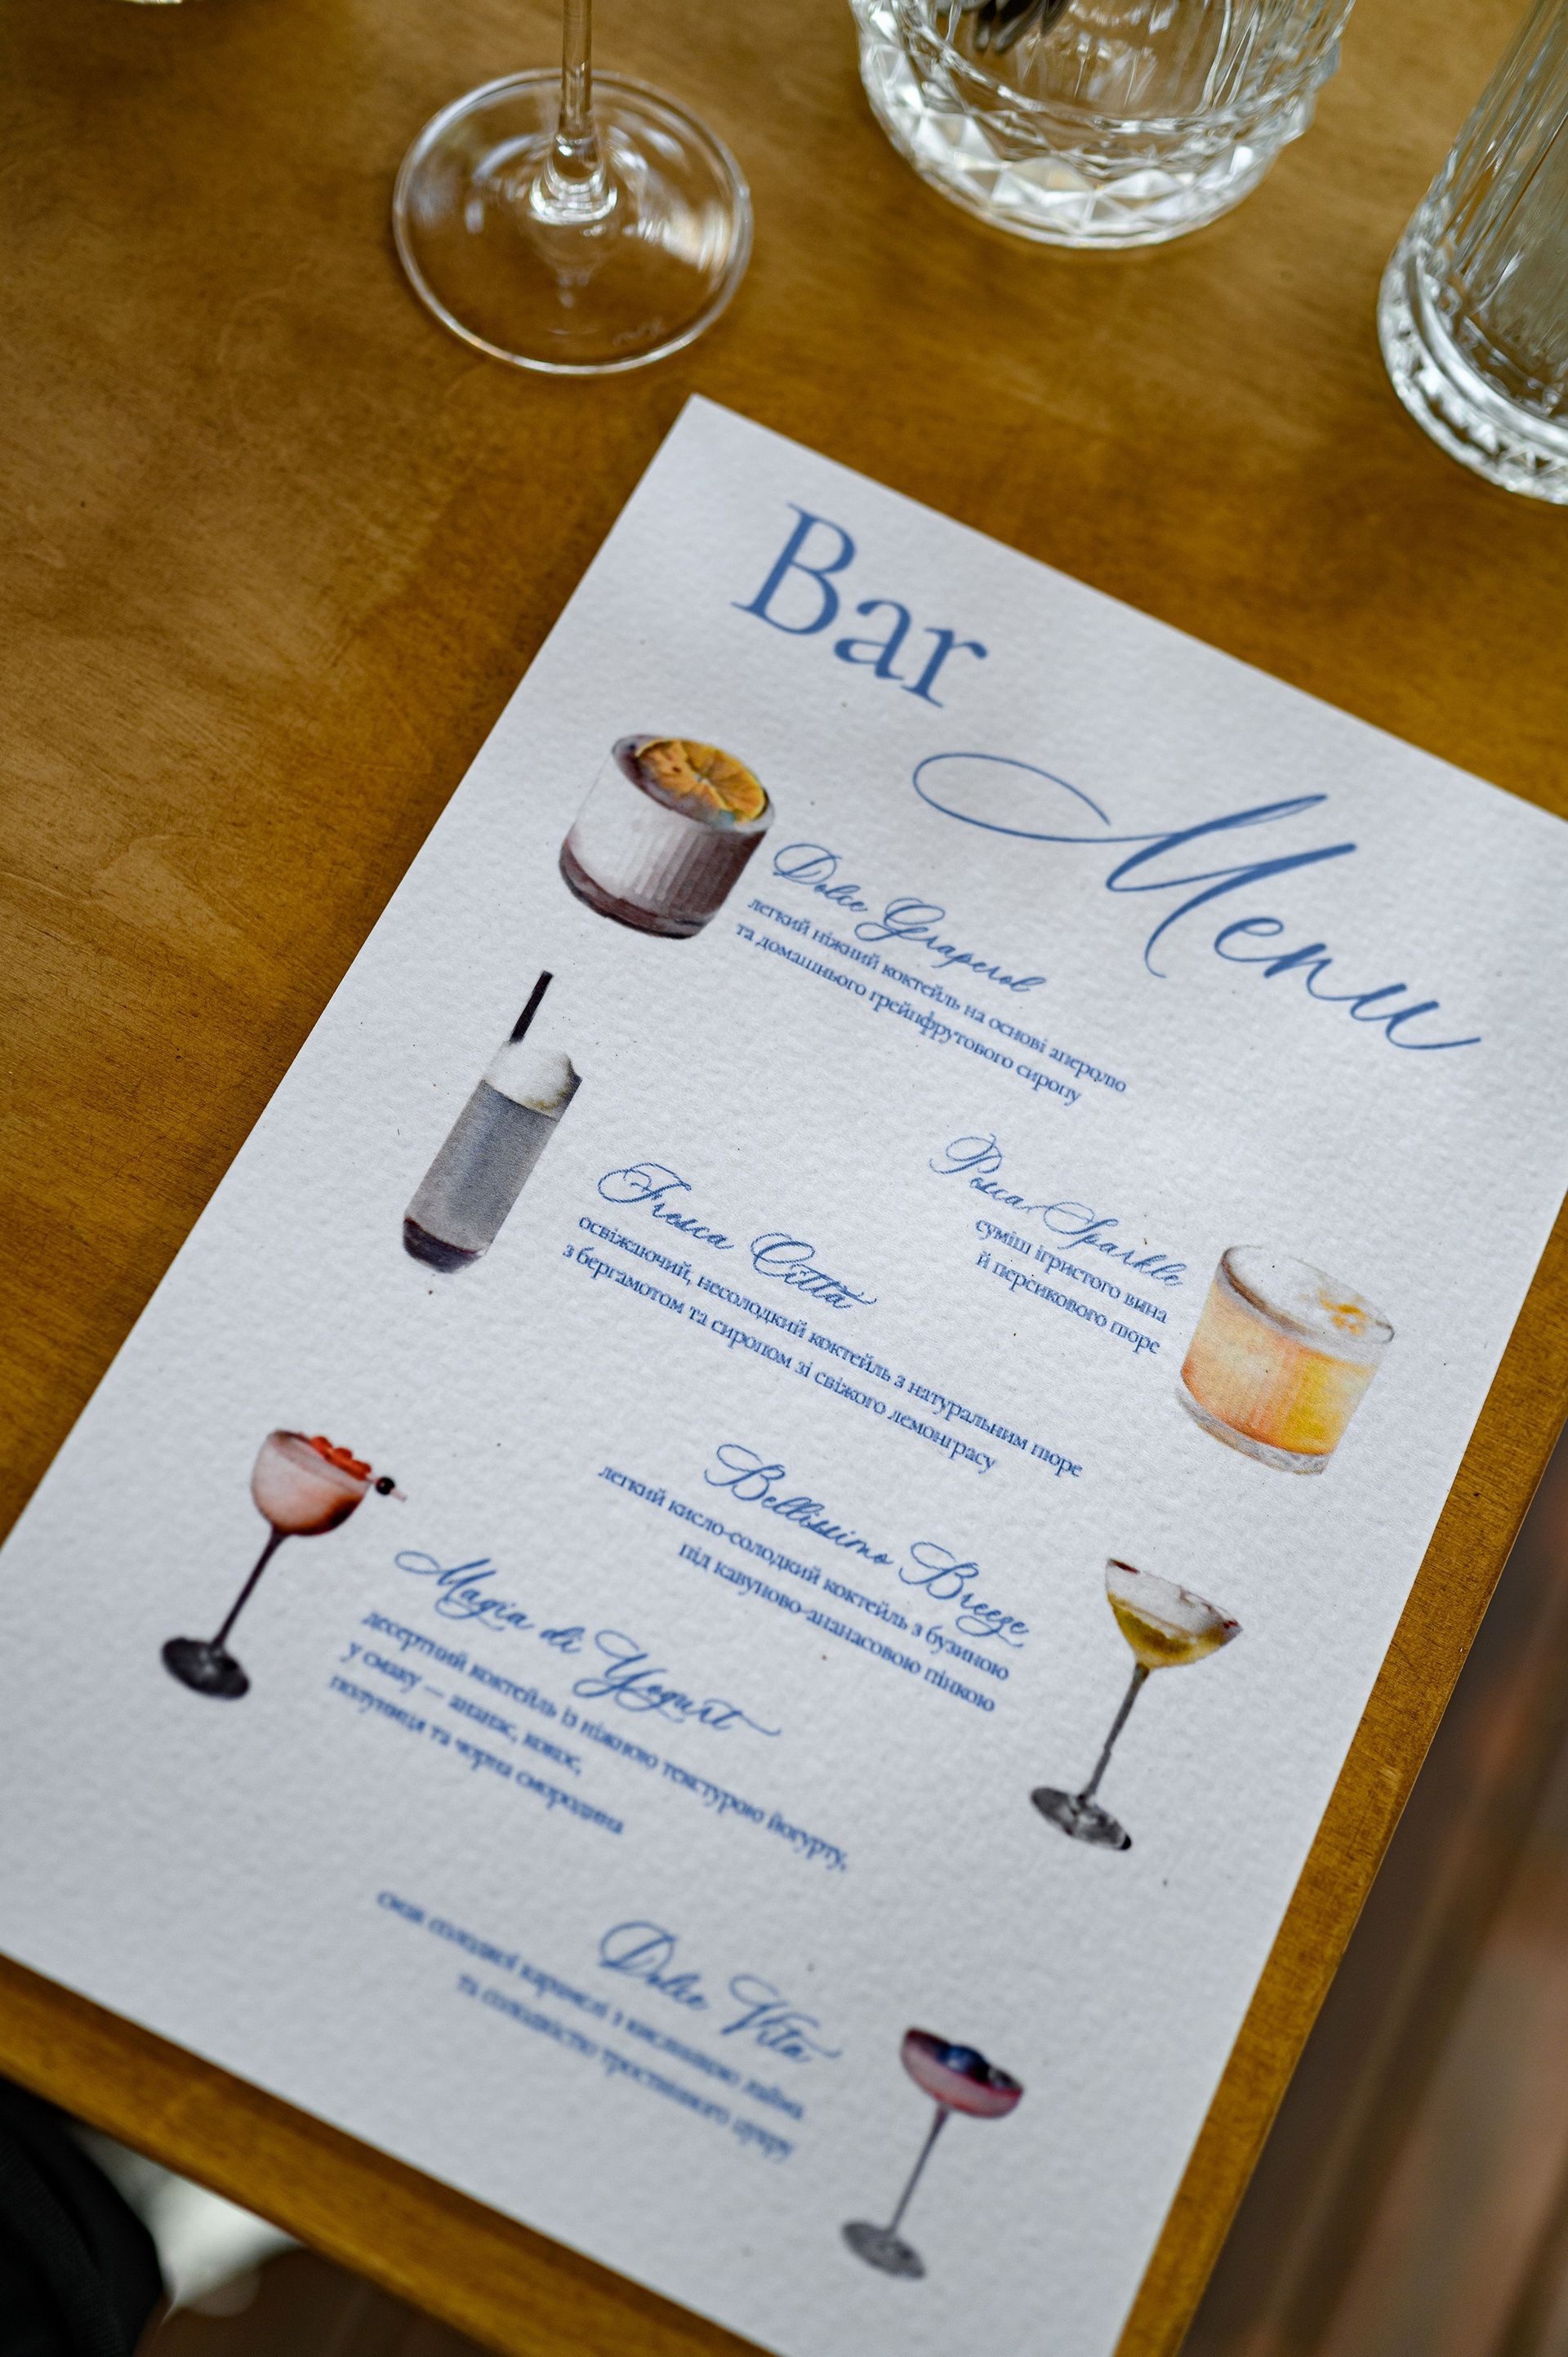 Bar
Menu
Dolce Graperol
легкий ніжний коктейль на основі аперолю
та домашнього грейпфрутового сиропу
Pesca Sparkle
суміш ігристого вина
й персикового пюре
Fresca Città
освіжаючий, несолодкий коктейль з натуральним пюре
з бергамотом та сиропом зі свіжого лемонграсу
Bellissimo Breeze
легкий кисло-солодкий коктейль з бузиною
під кавуново-ананасовою пінкою
Magia di Yogurt
десертний коктейль із ніжною текстурою йогурту,
у смаку — ананас, кокос,
полуниця та чорна смородина
Dolce Vita
смак солодкої карамелі з кислинкою лайма
та солодкістю тростинного цукру